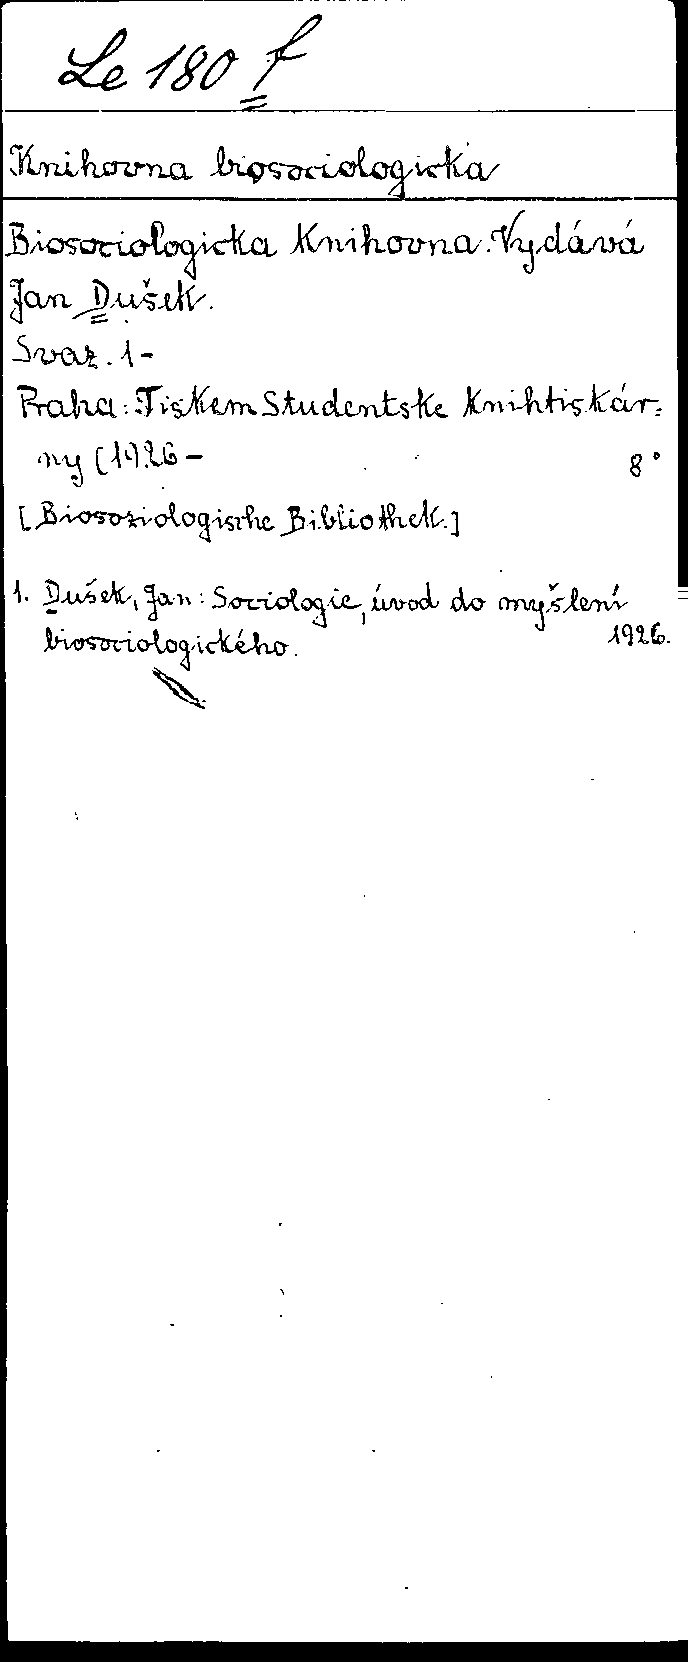 Le 180 f
Knihovna biosociologicka
Biosociologicka Knihovna. Vydává
Jan Dušek.
Svaz. 1-
Praha: Tiskem Studentske Knihtiskár=
ny (1926- 8°
[Biosoziologische Bibliothek.]
1. Dušek, Jan: Sociologie, úvod do myšlení
biosociologického. 1926.